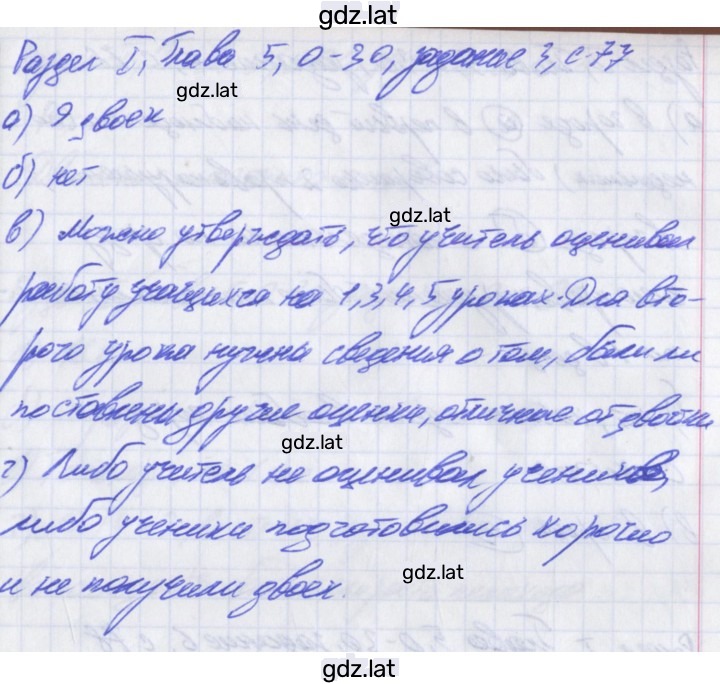 gdz.lat
Раздел I, Глава 5, О-30, задание 3, с 77
gdz.lat
а) 9 двоек
б) нет
gdz.lat
в) Можно утверждать, что учитель оценивал
работу учащихся на 1, 3, 4, 5 уроках. Для вто-
рого урока нужны сведения о том, были ли
поставлены другие оценки, отличные от двойки
gdz.lat
г) Либо учитель не оценивал учеников,
либо ученики подготовились хорошо
gdz.lat
и не получили двоек.
gdz.lat